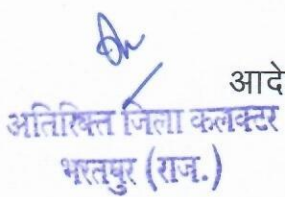 आदे
अतिरिक्त जिला कलक्टर
भरतपुर (राज.)